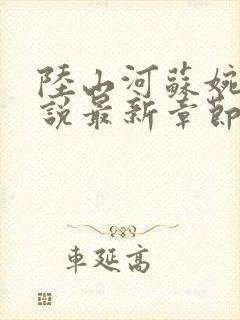 陸山河蘇婉
說最新章節
車延高